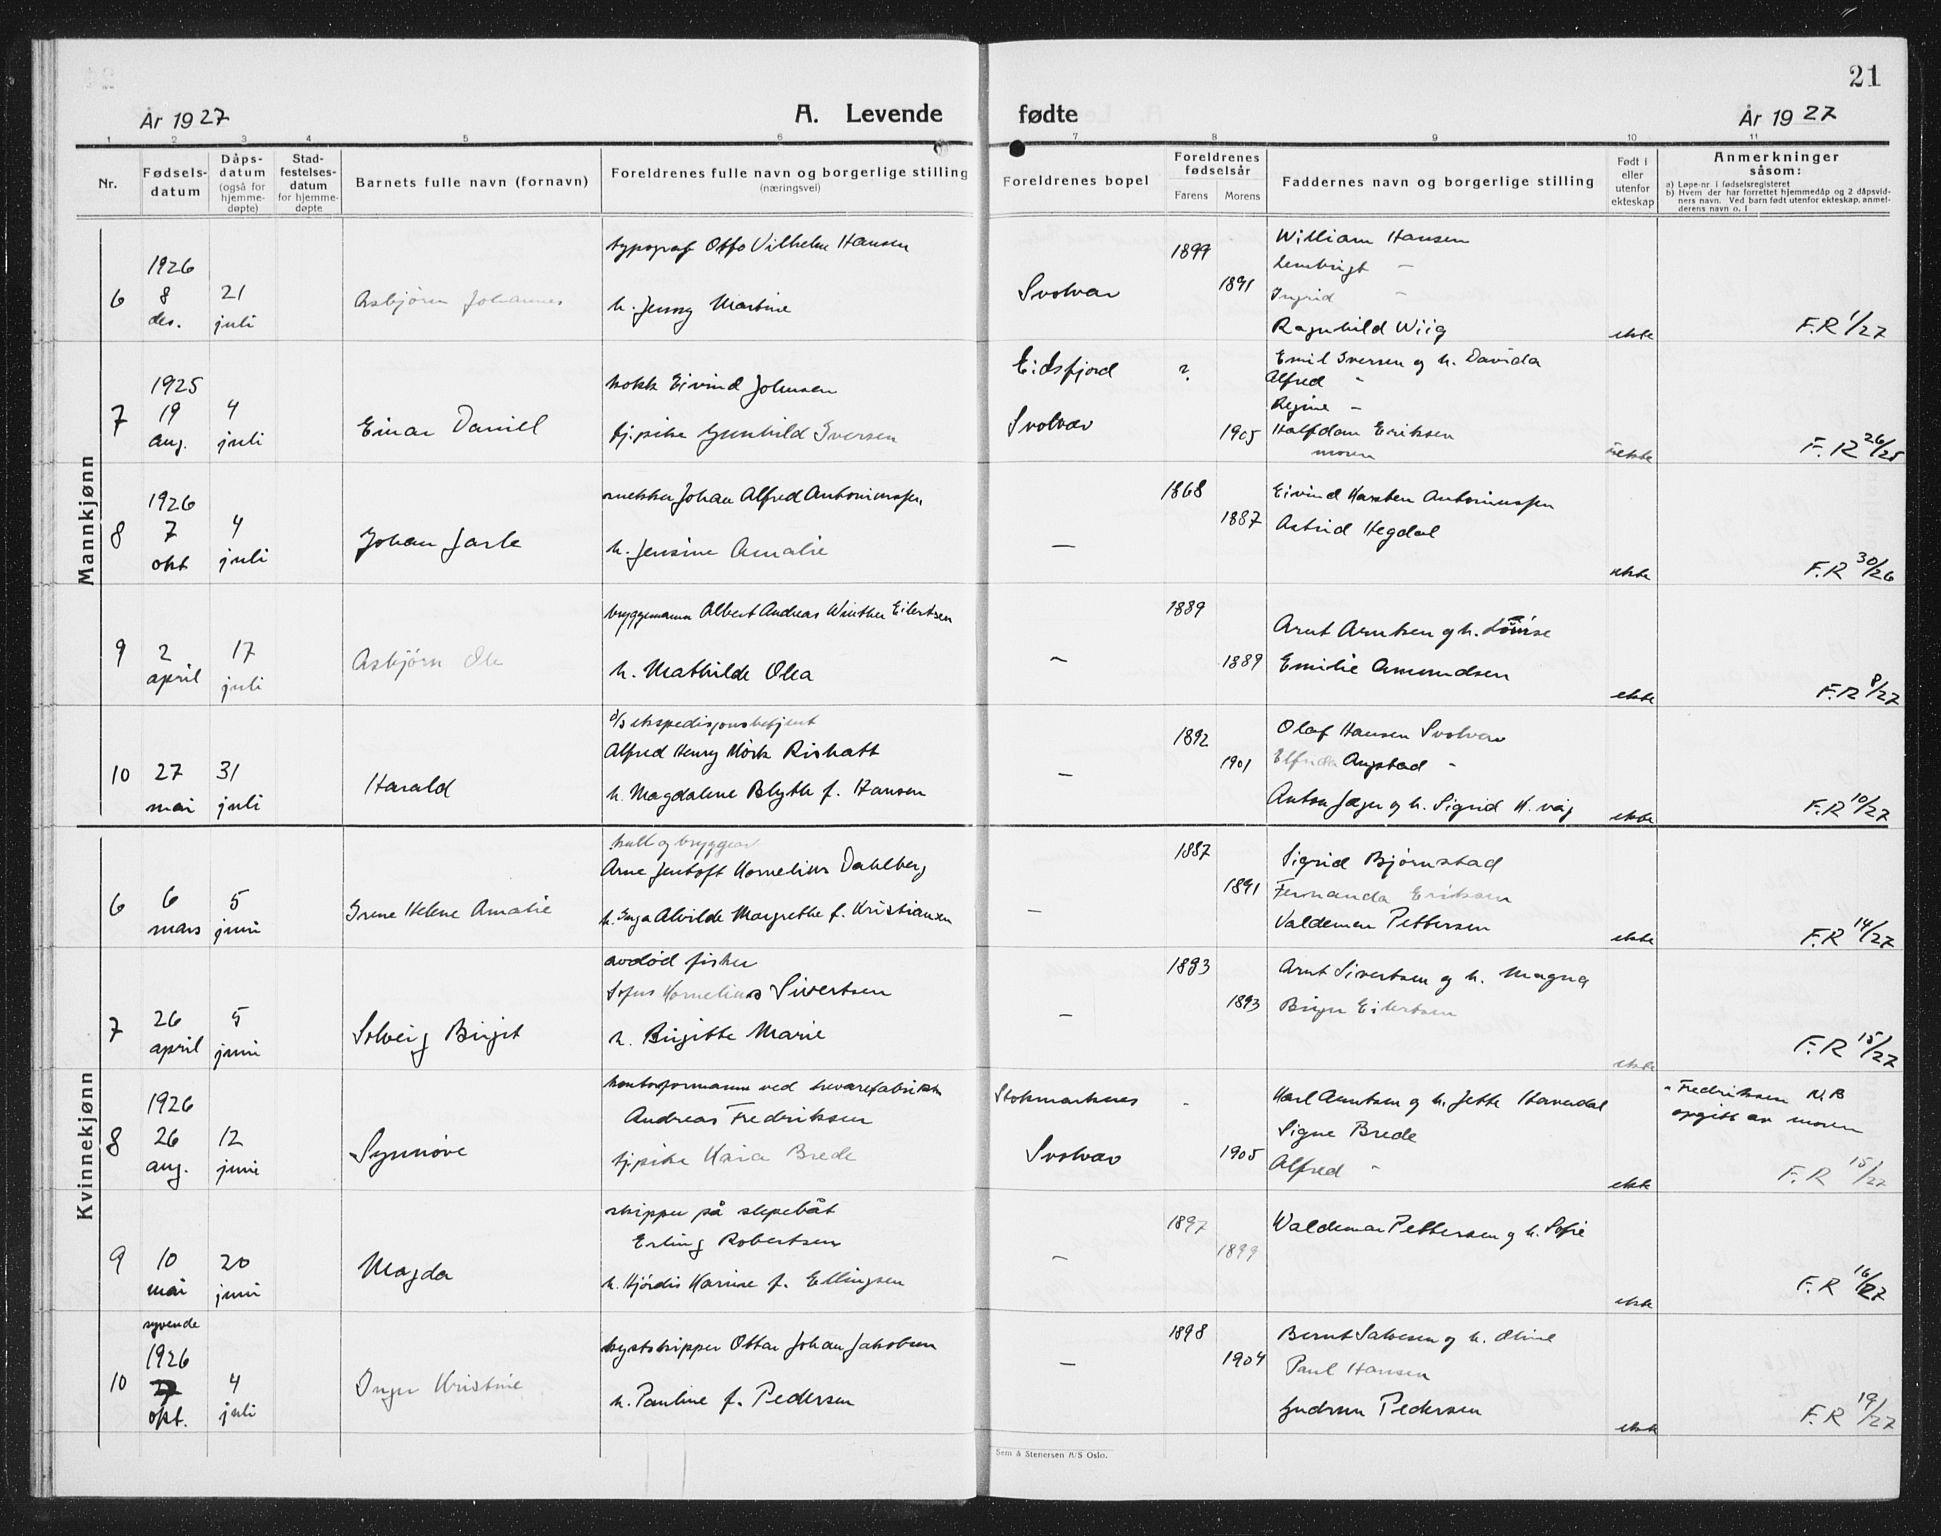 21
År 1927
A. Levende fødte
År 1927
1 2 3 4 5 6 7 8 9 10 11
Nr.
Fødsels-
datum
Dåps-
datum
(også for
hjemme-
døpte)
Stad-
festelses-
datum
for hjemme-
døpte
Barnets fulle navn (fornavn)
Foreldrenes fulle navn og borgerlige stilling
(næringsvei)
Foreldrenes bopel
Foreldrenes
fødselsår
Farens
Morens
Faddernes navn og borgerlige stilling
Født i
eller
utenfor
ekteskap
Anmerkninger
såsom:
a) Løpe-nr. i fødselsregisteret
b) Hvem der har forrettet hjemmedåp og 2 dåpsvid-
ners navn. Ved barn født utenfor ekteskap, anmel-
derens navn o. l
Mannkjønn
6
1926
8
des.
21
juli
Asbjørn Johannes
typograf Otto Vilhelm Hansen
h. Jenny Martine
Svolvær
1899
1891
William Hansen
Lembrigt –
Ingrid –
Ragnhild Wiig
ekte
F.R 1/27
7
1925
19
aug.
4
juli
Einar Daniel
kokk Eivind Johnsen
tj.pike Gunhild Iversen
Eidsfjord
Svolvær
?
1905
Emil Iversen og h. Davida
Alfred "
Regine –
Halfdan Eriksen
moren
uekte
F.R 26/25
8
1926
7
okt
4
juli
Johan Jarle
snekker Johan Alfred Antoniussen
h. Jensine Amalie
–
1868
1887
Eivind Karsten Antoniussen
Astrid Hegdal
ekte
F.R 30/26
9
2
april
17
juli
Asbjørn Ole
bryggemann Albert Andreas Winther Eilertsen
h. Mathilde Olea
–
1889
1889
Arnt Arntsen og h. Lovise
Emilie Amundsen
ekte
F.R 8/27
10
27
mai
31
juli
Harald
d/s ekspedisjonsbetjent
Alfred Henry Mörk Rishatt
h. Magdalene Blythe f. Hansen
–
1892
1901
Olaf Hansen Svolvær
Elfrida Angstad "
Anton Jæger og h. Sigrid K. våg
ekte
F.R 10/27
Kvinnekjønn
6
6
mars
5
juni
Irene Helene Amalie
kull og bryggearb
Arne Jentoft Kornelius Dahlberg
h. Inga Alvilde Margrethe f. Kristiansen
–
1887
1891
Sigrid Bjørnstad
Fernanda Eriksen
Valdemar Pettersen
ekte
F.R 14/27
7
26
april
5
juni
Solveig Birgit
avdød fisker
Sofus Kornelius Sivertsen
h. Birgitte Marie
–
1893
1893
Arnt Sivertsen og h. Magna
Birger Eilertsen
ekte
F.R 15/27
8
1926
26
aug.
12
juni
Synnöve
kontorformann ved trevarefabrikk
Andreas Fredriksen
tj.pike Kaia Brede
Stokmarknes
Svolvær
-
1905
Karl Arntsen og h. Jette Havndal
Signe Brede
Alfred "
ekte
"Fredriksen N.B
opgitt av moren
F.R 15/27
9
10
mai
20
juni
Magda
skipper på slepebåt
Erling Robertsen
h. Hjördis Karine f. Ellingsen
–
1897
1899
Waldemar Pettersen og h. Sofie
ekte
F.R 16/27
10
syvende
1926
okt.
4
juli
Inger Kristine
kystskipper Ottar Johan Jakobsen
h. Pauline f. Pedersen
–
1898
1904
Bernt Salvesen og h. Oline
Paul Hansen
Gudrun Pedersen
ekte
F.R 19/27
Sem & Stenersen A/S Oslo.